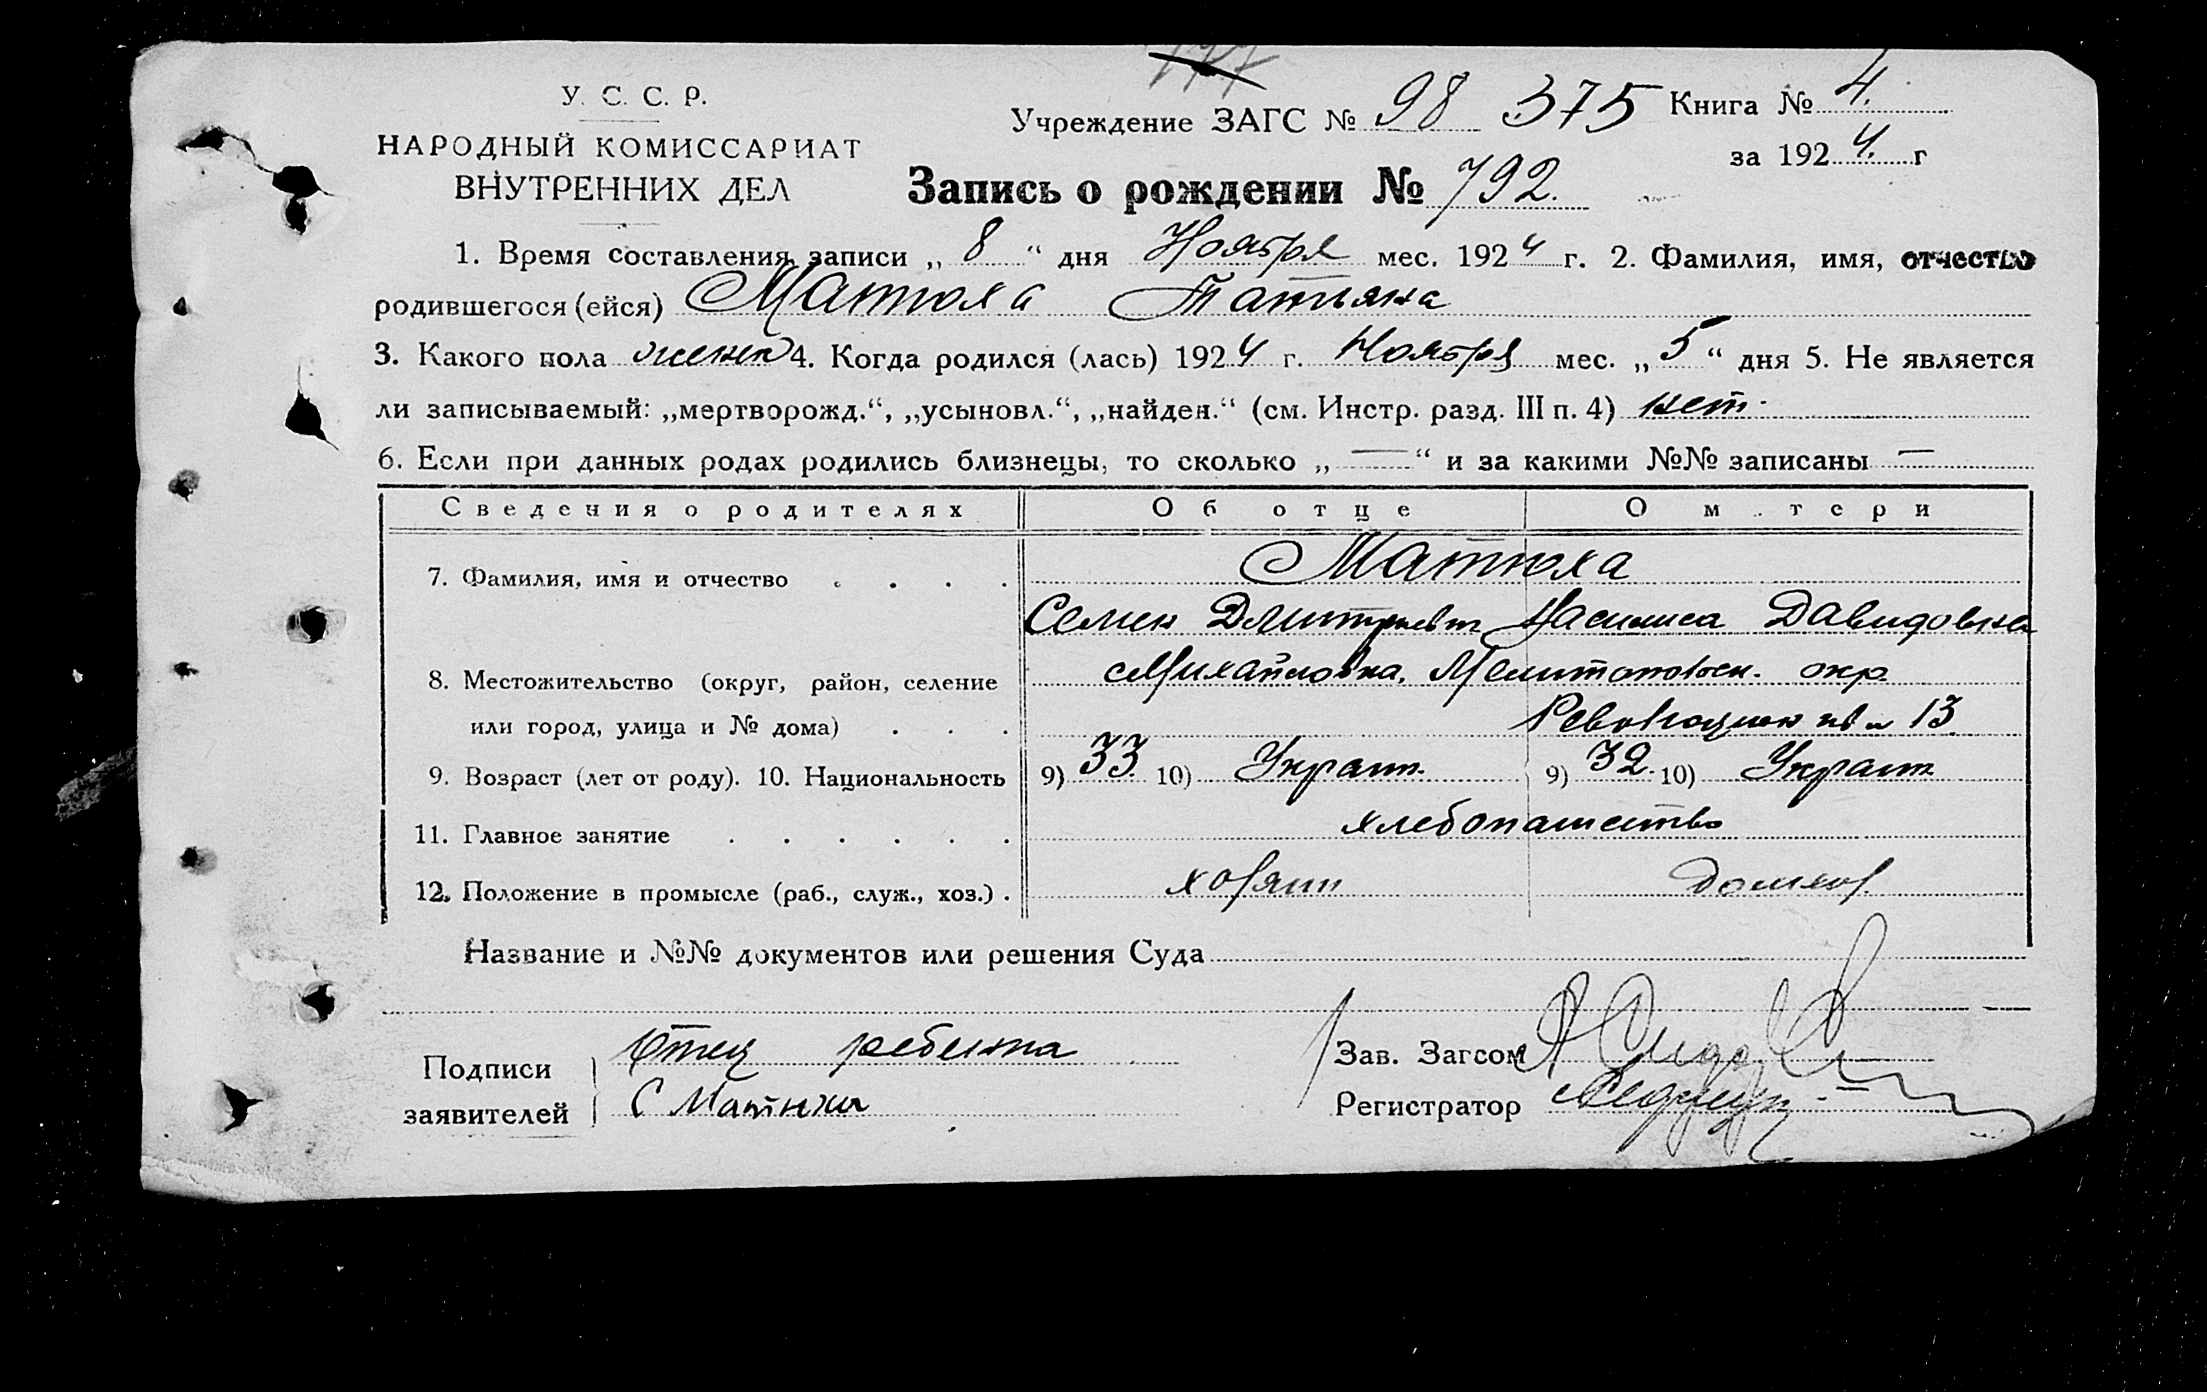 У. С. С. Р.
НАРОДНЫЙ КОМИССАРИАТ
ВНУТРЕННИХ ДЕЛ
Учреждение ЗАГС № 98 375 Книга № 4.
за 1924. г
Запись о рождении № 792.
1. Время составления записи „ 8 “ дня Ноября мес. 1924 г. 2. Фамилия, имя, отчество
родившегося (ейся) Матюха Татьяна
3. Какого пола женск 4. Когда родился (лась) 1924 г. Ноября мес. „ 5 “ дня 5. Не является
ли записываемый: „мертворожд.“, „усыновл.“, „найден.“ (см. Инстр. разд. III п. 4) нет.
6. Если при данных родах родились близнецы, то сколько „ — “ и за какими №№ записаны —
Сведения о родителях Об отце О м тери
7. Фамилия, имя и отчество . . . . Матюха
Семен Дмитриевич Василиса Давидовна
8. Местожительство (округ, район, селение Михайловка, Мелитопольск. окр.
или город, улица и № дома) . . . 13
9. Возраст (лет от роду). 10. Национальность 9) 33 10) Украин. 9) 32 10) Украин
11. Главное занятие . . . . . . хлебопашество
12. Положение в промысле (раб., служ., хоз.) . хозяин домхоз.
Название и №№ документов или решения Суда
Подписи Отец ребенка
заявителей С Матюха
Зав. Загсом
Регистратор